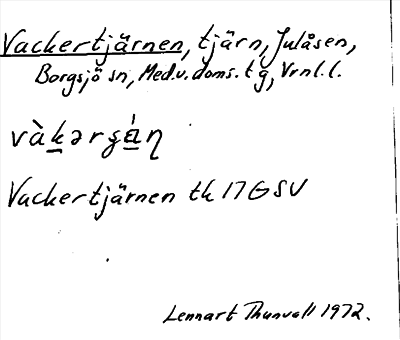 Vackertjärnen, tjärn, Julåsen,
Borgsjö sn, Med.v. doms. tg, Vrnl. l.
vàkərʂán
Vackertjärnen tk 17G SV
Lennart Thunvall 1972.